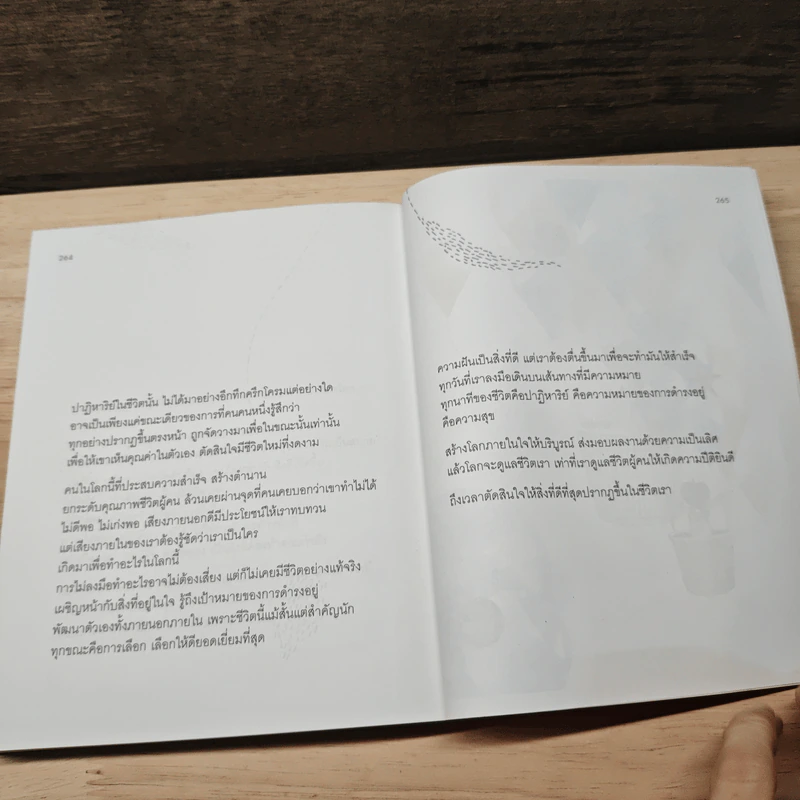 264
ปาฏิหาริย์ในชีวิตนั้น ไม่ได้มาอย่างอึกทึกครึกโครมแต่อย่างใด
อาจเป็นเพียงแค่ขณะเดียวของการที่คนคนหนึ่งรู้สึกว่า
ทุกอย่างปรากฏขึ้นตรงหน้า ถูกจัดวางมาเพื่อในขณะนั้นเท่านั้น
เพื่อให้เขาเห็นคุณค่าในตัวเอง ตัดสินใจมีชีวิตใหม่ที่งดงาม
คนในโลกนี้ที่ประสบความสำเร็จ สร้างตำนาน
ยกระดับคุณภาพชีวิตผู้คน ล้วนเคยผ่านจุดที่คนเคยบอกว่าเขาทำไม่ได้
ไม่ดีพอ ไม่เก่งพอ เสียงภายนอกดีมีประโยชน์ให้เราทบทวน
แต่เสียงภายในของเราต้องรู้ชัดว่าเราเป็นใคร
เกิดมาเพื่อทำอะไรในโลกนี้
การไม่ลงมือทำอะไรอาจไม่ต้องเสี่ยง แต่ก็ไม่เคยมีชีวิตอย่างแท้จริง
เผชิญหน้ากับสิ่งที่อยู่ในใจ รู้ถึงเป้าหมายของการดำรงอยู่
พัฒนาตัวเองทั้งภายนอกภายใน เพราะชีวิตนี้แม้สั้นแต่สำคัญนัก
ทุกขณะคือการเลือก เลือกให้ดียอดเยี่ยมที่สุด
265
ความฝันเป็นสิ่งที่ดี แต่เราต้องตื่นขึ้นมาเพื่อจะทำมันให้สำเร็จ
ทุกวันที่เราลงมือเดินบนเส้นทางที่มีความหมาย
ทุกนาทีของชีวิตคือปาฏิหาริย์ คือความหมายของการดำรงอยู่
คือความสุข
สร้างโลกภายในใจให้บริบูรณ์ ส่งมอบผลงานด้วยความเป็นเลิศ
แล้วโลกจะดูแลชีวิตเรา เท่าที่เราดูแลชีวิตผู้คนให้เกิดความปีติยินดี
ถึงเวลาตัดสินใจให้สิ่งที่ดีที่สุดปรากฏขึ้นในชีวิตเรา